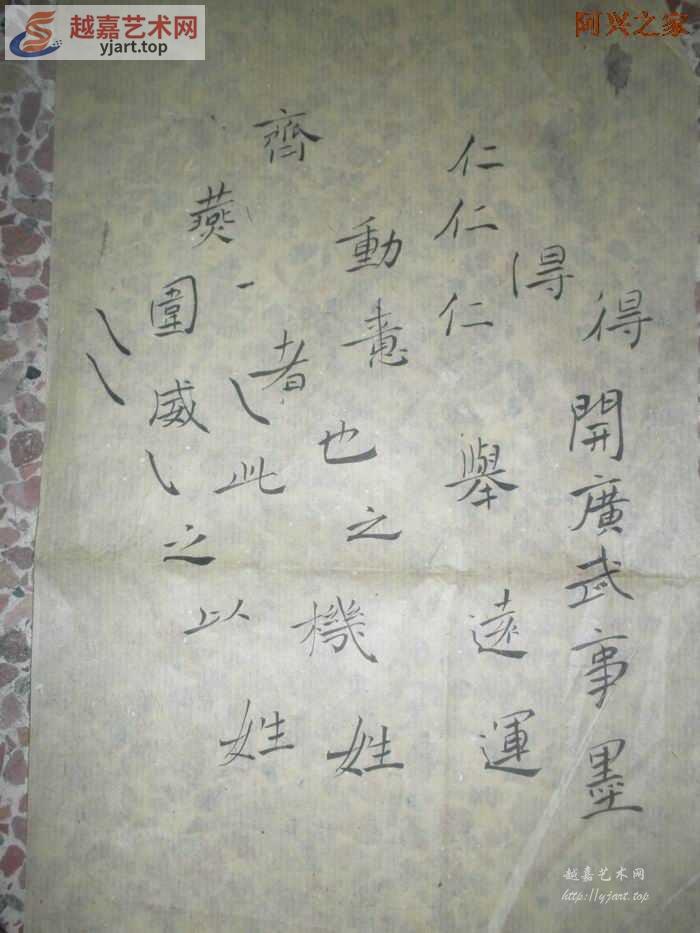 越嘉艺术网
yjart.top
阿兴之家
得開廣武事墨
得
仁仁仁舉遠運
動意也之機姓
齊一者此以姓
燕圍威之
越嘉艺术网
http://yjart.top